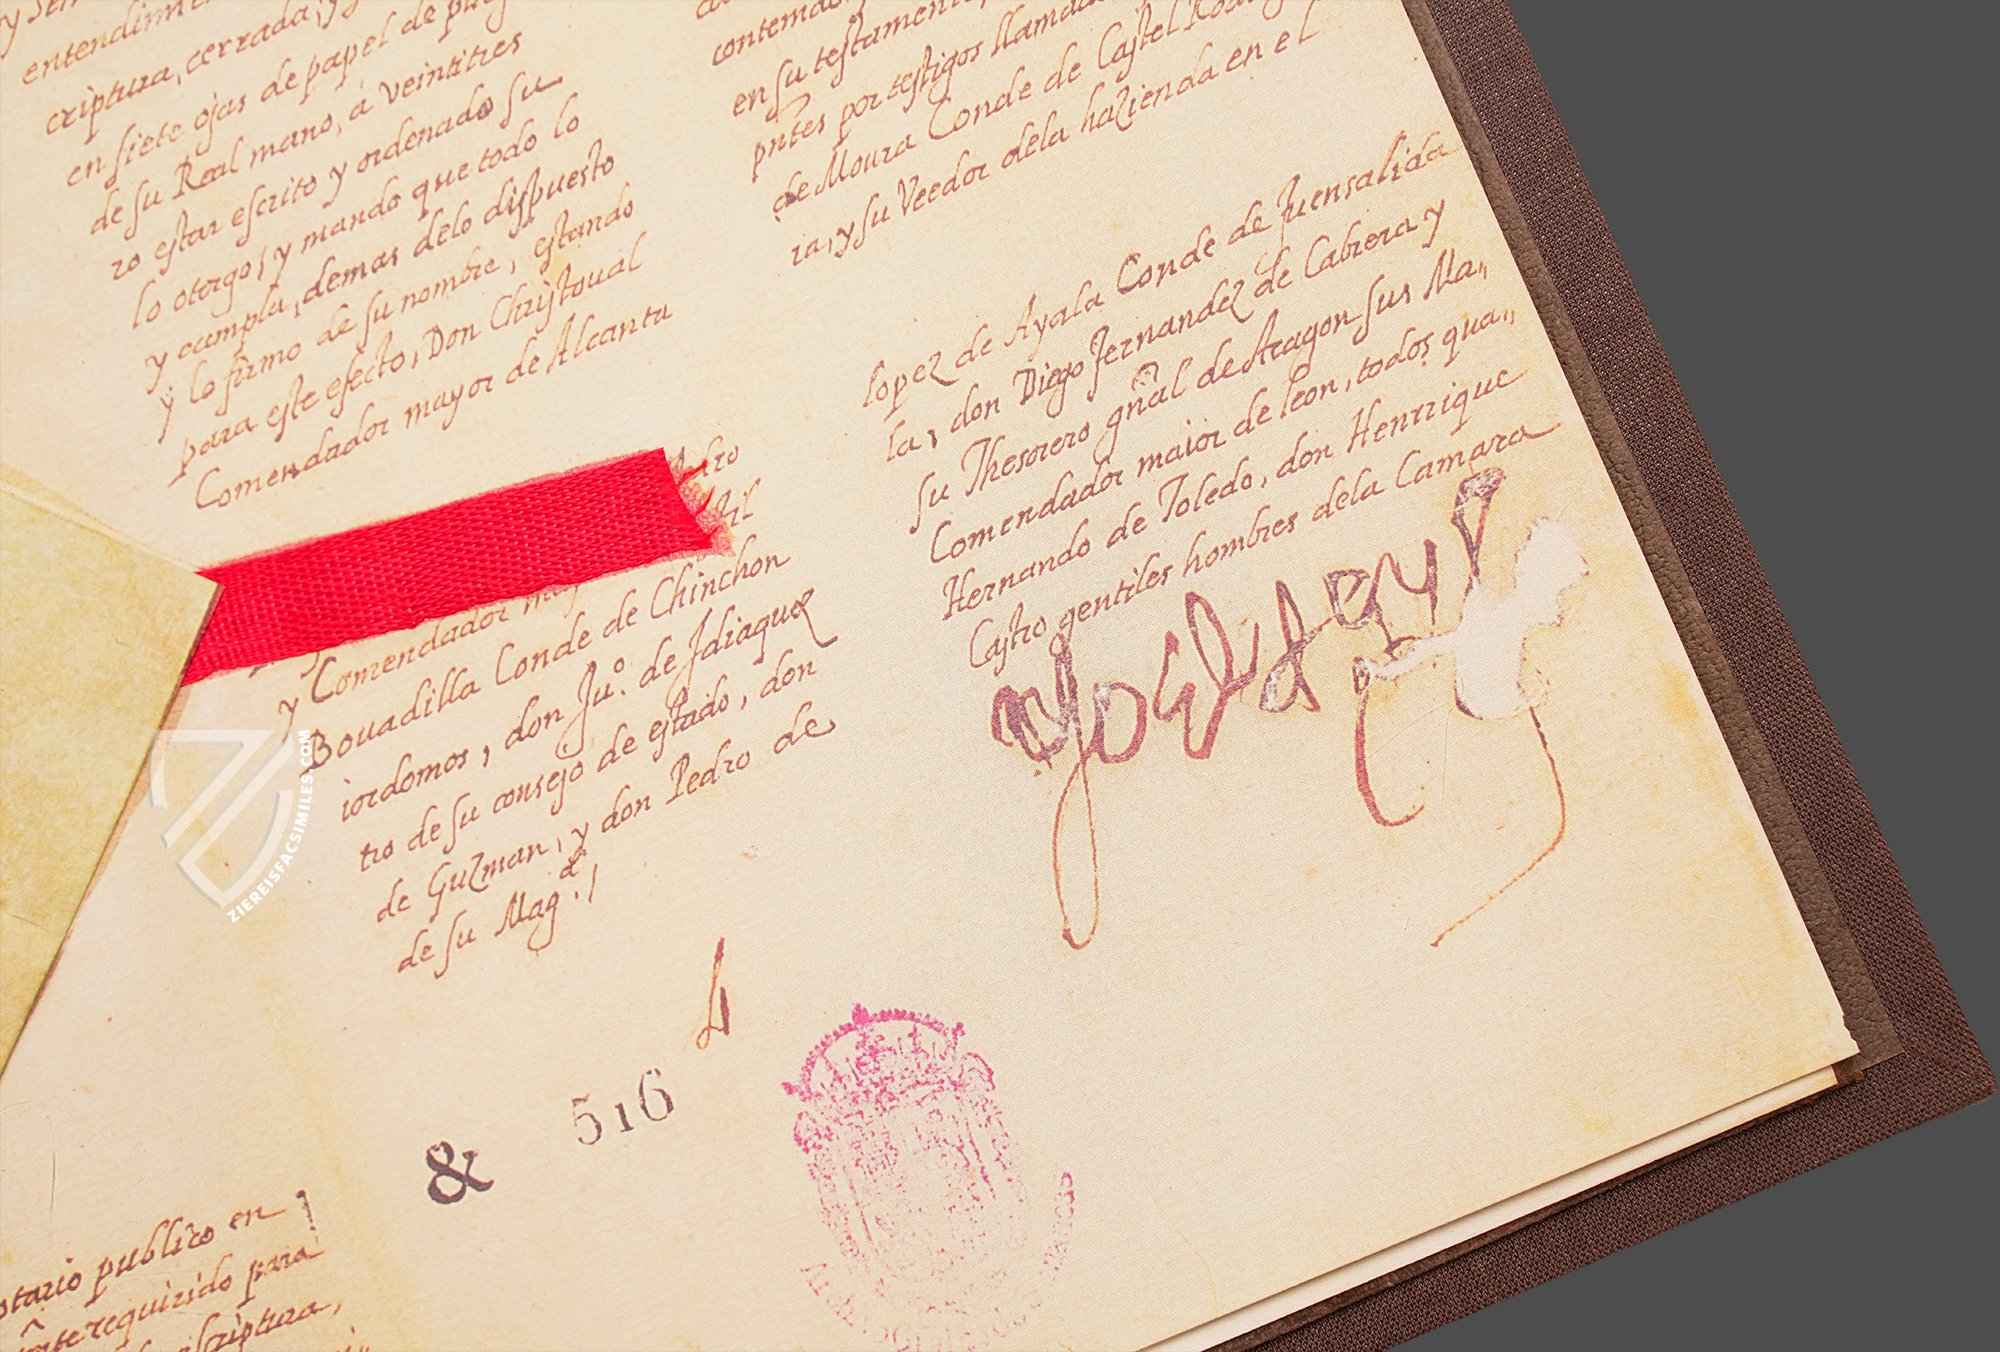 entendimi
criptura, cerrada, y
en siete ojas de papel de
de su Real mano, a veintitres
ro estar escrito y ordenado su
lo otorgo, y mando que todo lo
y cumpla, demas delo dispuesto
y lo firmo de su nombre, estando
para este efecto, Don Christoual
Comendador mayor de Alcanta
y Comendador
Bouadilla Conde de Chinchon
iordomos, don Juº. de Idiaquez
tro de su consejo de estado, don
de Guzman, y don Pedro de
de su Magd.
contenido
en su testamento
pntes por testigos llamado
de Moura Conde de Castel Rodrig
ra, y su Veedor dela hazienda en el
lopez de Ayala Conde de fuensalida
la, don Diego fernandez de Cabrera y
su Thesorero gñal de Aragon sus Ma,,
Comendador maior de leon, todos qua,,
Hernando de Toledo, don Henrrique
Castro gentiles hombres dela Camara
Yo el Rey
& 516
otario publico en
requirido para
scriptura,
ZIEREISFACSIMILES.COM